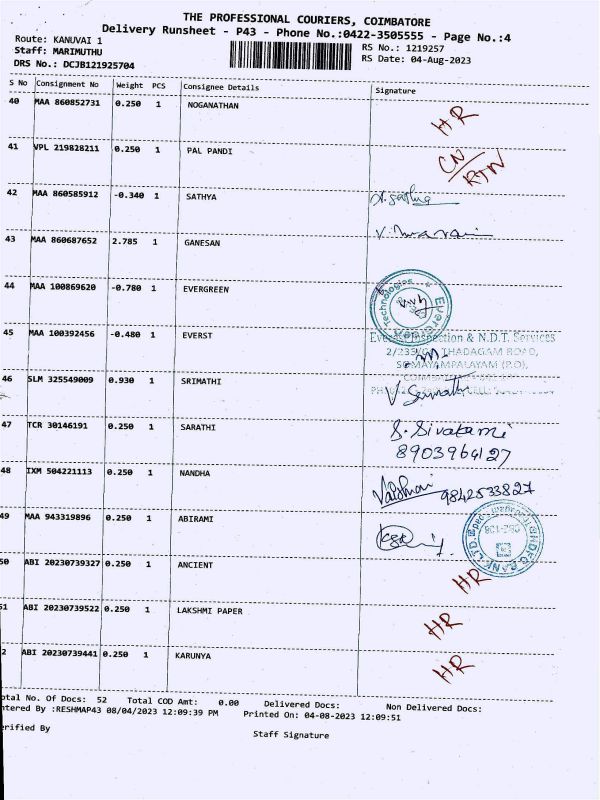 THE PROFESSIONAL COURIERS, COIMBATORE
Delivery Runsheet - P43 - Phone No.:0422-3505555 - Page No.:4
Route: KANUVAI 1
RS No.: 1219257
Staff: MARIMUTHU
RS Date: 04-Aug-2023
DRS No.: DCJB121925704
S No Consignment No Weight PCS Consignee Details Signature
40 MAA 860852731 0.250 1 NOGANATHAN HR
41 VPL 219828211 0.250 1 PAL PANDI CN/RTN
42 MAA 860585912 -0.340 1 SATHYA
43 MAA 860687652 2.785 1 GANESAN
44 MAA 100869620 -0.780 1 EVERGREEN
Technologies
45 MAA 100392456 -0.480 1 EVERST
Inspection & N.D.T. Services
THADAGAM ROAD,
SOMAYAMPALAYAM (P.O),
46 SLM 325549009 0.930 1 SRIMATHI
47 TCR 30146191 0.250 1 SARATHI S. Sivakami
8903964127
48 IXM 504221113 0.250 1 NANDHA Vaishnavi 9842533827
49 MAA 943319896 0.250 1 ABIRAMI
HDFC BANK LTD.
50 ABI 20230739327 0.250 1 ANCIENT HR
51 ABI 20230739522 0.250 1 LAKSHMI PAPER HR
2 ABI 20230739441 0.250 1 KARUNYA HR
otal No. Of Docs: 52 Total COD Amt: 0.00 Delivered Docs: Non Delivered Docs:
ntered By :RESHMAP43 08/04/2023 12:09:39 PM Printed On: 04-08-2023 12:09:51
erified By
Staff Signature